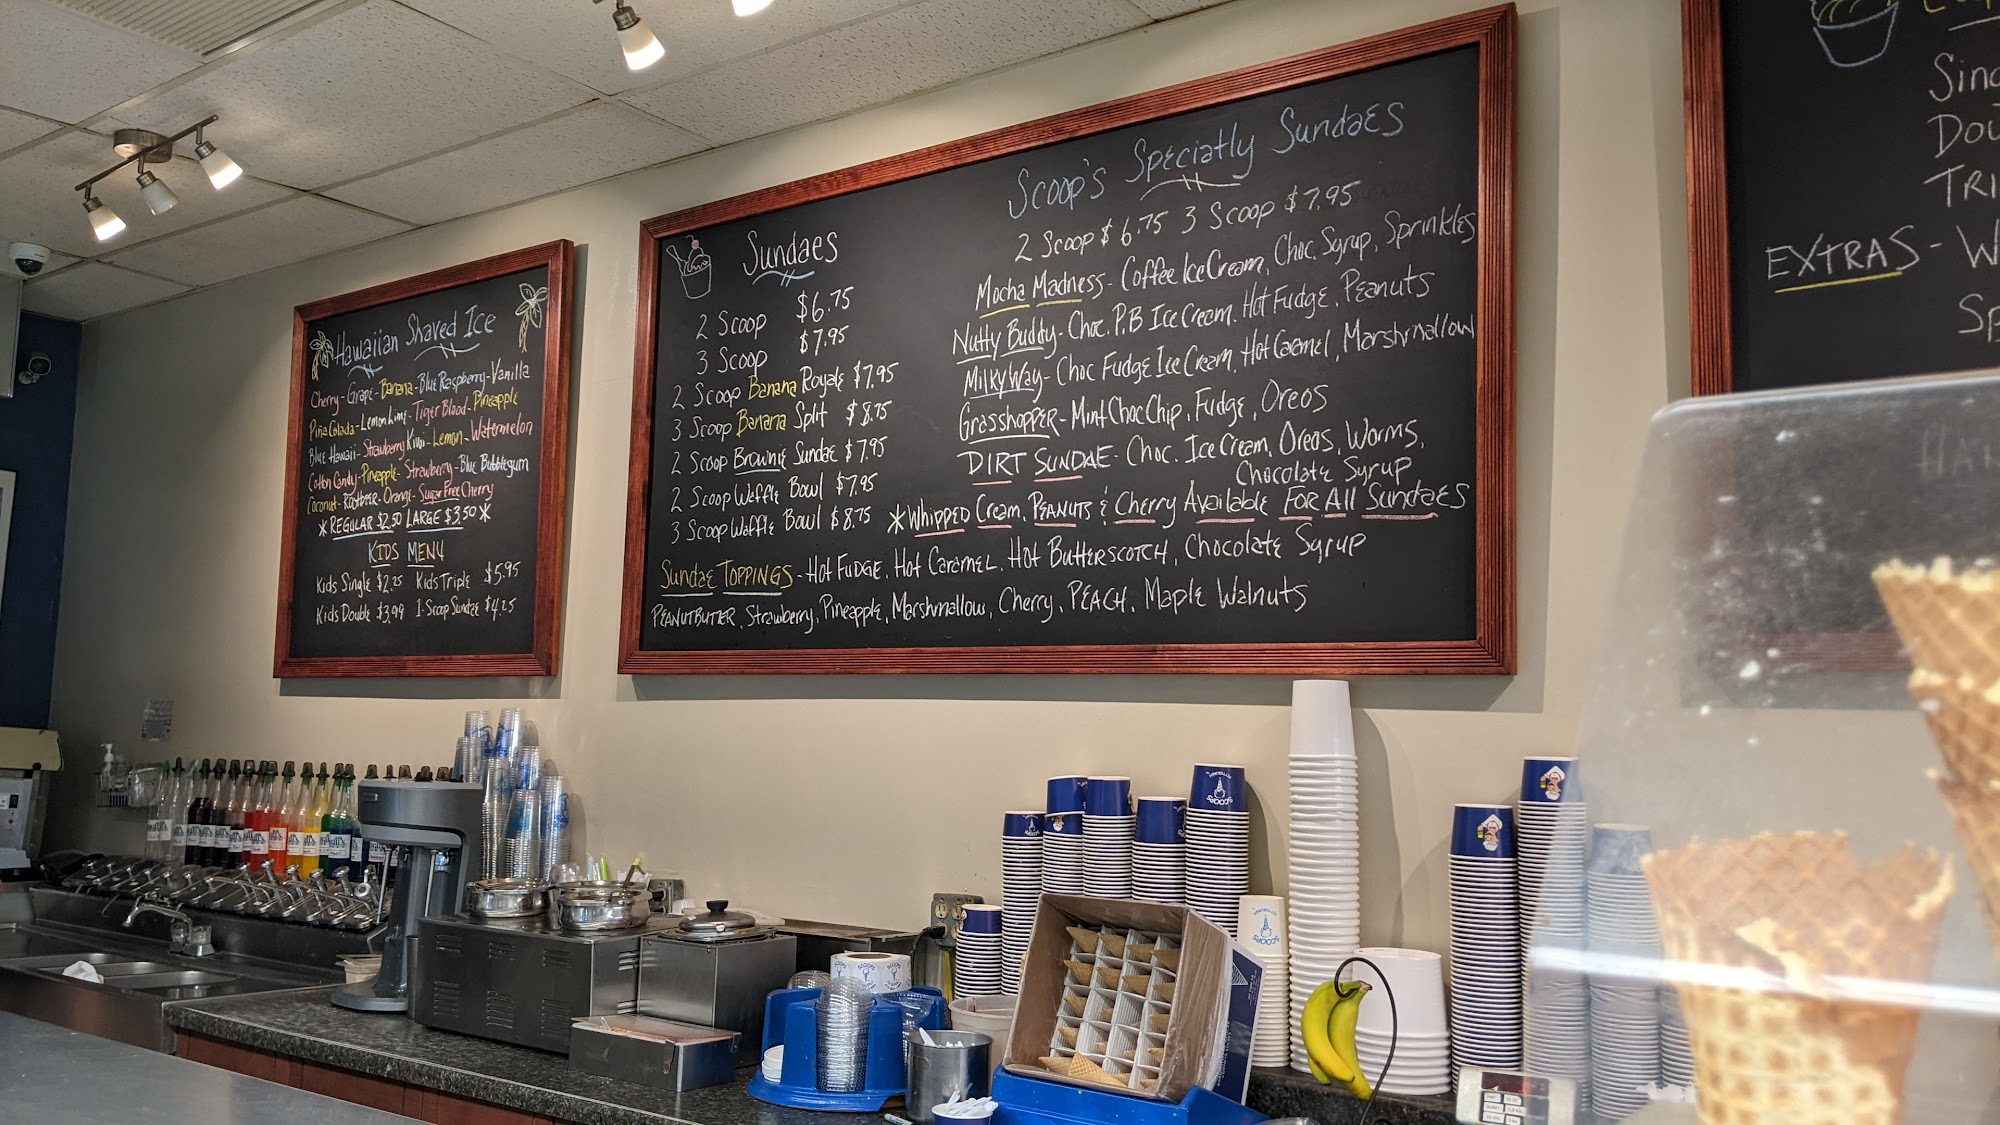 Hawaiian Shaved Ice
Cherry - Grape - Banana - Blue Raspberry - Vanilla
Piña Colada - Lemon Lime - Tiger Blood - Pineapple
Blue Hawaii - Strawberry Kiwi - Lemon - Watermelon
Cotton Candy - Pineapple - Strawberry - Blue Bubblegum
Coconut - Rootbeer - Orange - Sugar Free Cherry
*REGULAR $2.50 LARGE $3.50*
KIDS MENU
Kids Single $2.25 Kids Triple $5.95
Kids Double $3.99 1-Scoop Sundae $4.25
Sundaes
2 Scoop $6.75
3 Scoop $7.95
2 Scoop Banana Royale $7.95
3 Scoop Banana Split $8.75
2 Scoop Brownie Sundae $7.95
2 Scoop Waffle Bowl $7.95
3 Scoop Waffle Bowl $8.75
Scoop's Speciatly Sundaes
2 Scoop $6.75 3 Scoop $7.95
Mocha Madness - Coffee Ice Cream, Choc. Syrup, Sprinkles
Nutty Buddy - Choc. P.B Ice Cream, Hot Fudge, Peanuts
Milky Way - Choc Fudge Ice Cream, Hot Caramel, Marshmallow
Grasshopper - Mint Choc Chip, Fudge, Oreos
DIRT SUNDAE - Choc. Ice Cream, Oreos, Worms,
Chocolate Syrup
*Whipped Cream, PEANUTS & Cherry Available FOR All SUNDAES
Sundae TOPPINGS - Hot FUDGE, Hot Caramel, Hot Butterscotch, Chocolate Syrup
PEANUTBUTTER, Strawberry, Pineapple, Marshmallow, Cherry, PEACH, Maple Walnuts
EXTRAS -
SCOOPS
SCOOPS